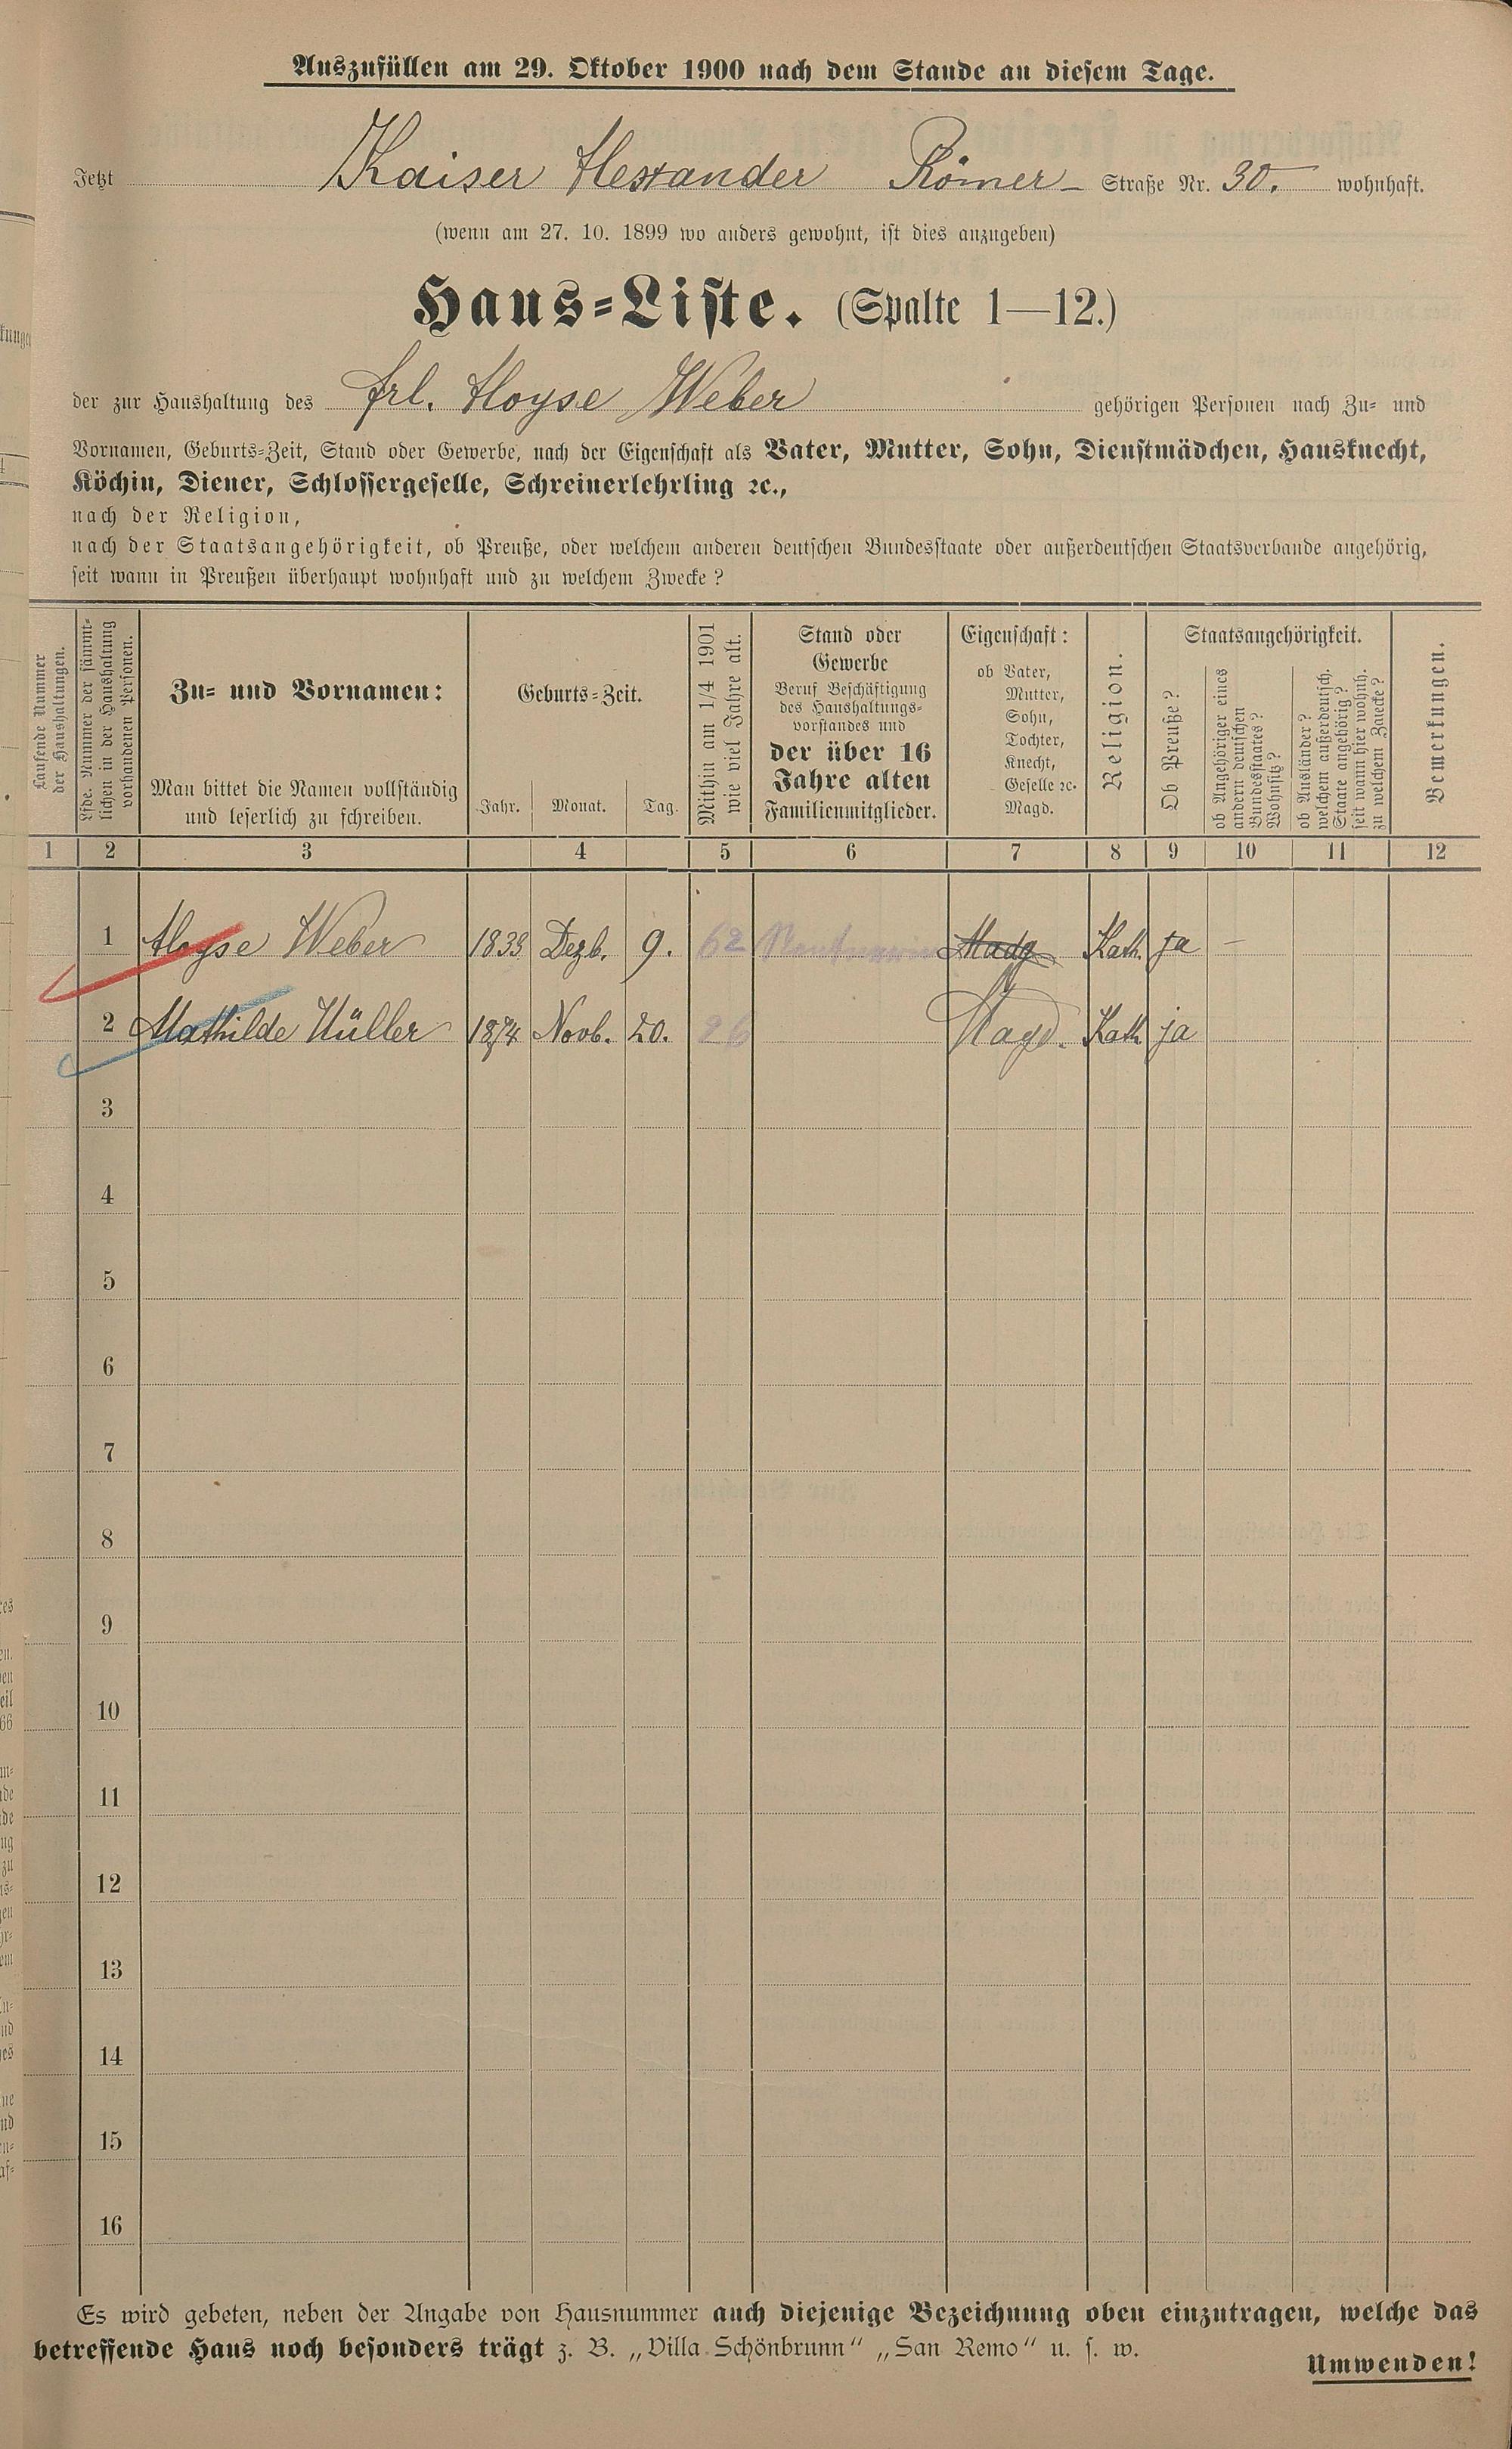 Auszufüllen am 29. Oktober 1900 nach dem Stande an diesem Tage.
Jetzt Kaiser Alexander Römer- Straße Nr. 30. wohnhaft.
(wenn am 27. 10. 1899 wo anders gewohnt, ist dies anzugeben)
Haus-Liste. (Spalte 1—12.)
der zur Haushaltung des Frl. Aloyse Weber gehörigen Personen nach Zu- und
Vornamen, Geburts-Zeit, Stand oder Gewerbe, nach der Eigenschaft als Vater, Mutter, Sohn, Dienstmädchen, Hausknecht,
Köchin, Diener, Schlossergeselle, Schreinerlehrling ꝛc.,
nach der Religion,
nach der Staatsangehörigkeit, ob Preuße, oder welchem anderen deutschen Bundesstaate oder außerdeutschen Staatsverbande angehörig,
seit wann in Preußen überhaupt wohnhaft und zu welchem Zwecke?
Laufende Nummer
der Haushaltungen.
Lfde. Nummer der sämmt-
lichen in der Haushaltung
vorhandenen Personen.
Zu- und Vornamen:
Man bittet die Namen vollständig
und leserlich zu schreiben.
Geburts-Zeit.
Jahr. Monat. Tag.
Mithin am 1/4 1901
wie viel Jahre alt.
Stand oder
Gewerbe
Beruf Beschäftigung
des Haushaltungs-
vorstandes und
der über 16
Jahre alten
Familienmitglieder.
Eigenschaft:
ob Vater,
Mutter,
Sohn,
Tochter,
Knecht,
Geselle ꝛc.
Magd.
Religion.
Staatsangehörigkeit.
Ob Preuße?
ob Angehöriger eines
andern deutschen
Bundesstaates?
Wohnsitz?
ob Ausländer?
welchem außerdeutsch.
Staate angehörig?
seit wann hier wohnh.
zu welchem Zwecke?
Bemerkungen.
1 2 3 4 5 6 7 8 9 10 11 12
1 Aloyse Weber 1838 Dezb. 9. 62 Rentnerin Madg Kath. ja —
2 Mathilde Müller 1874 Novb. 20. 26 Magd. Kath ja
3
4
5
6
7
8
9
10
11
12
13
14
15
16
Es wird gebeten, neben der Angabe von Hausnummer auch diejenige Bezeichnung oben einzutragen, welche das
betreffende Haus noch besonders trägt z. B. „Villa Schönbrunn" „San Remo" u. s. w.
Umwenden!